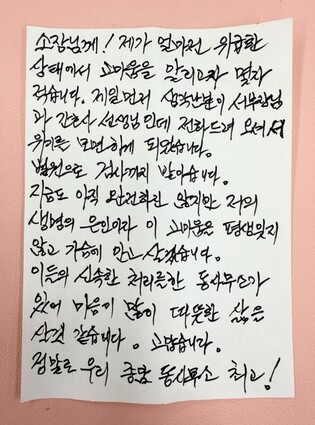 소장님께! 제가 얼마전 위급한
상태에서 고마움을 알리고자 몇자
적습니다. 제일먼저 생각난분이 서부장님
과 간호사 선생님인데 전화드려 오셔서
위기를 모면하게 되었습니다.
병원으로 검사까지 받아습니다.
지금도 아직 완전하진 않지만 저의
생명의 은인이자 이 고마움은 평생잊지
않고 가슴에 안고 살겠습니다.
이들의 신속한 처리를한 동사무소가
있어 마음이 많이 따뜻한 삶을
살것 같습니다. 고맙습니다.
정말로 우리 동사무소 최고!